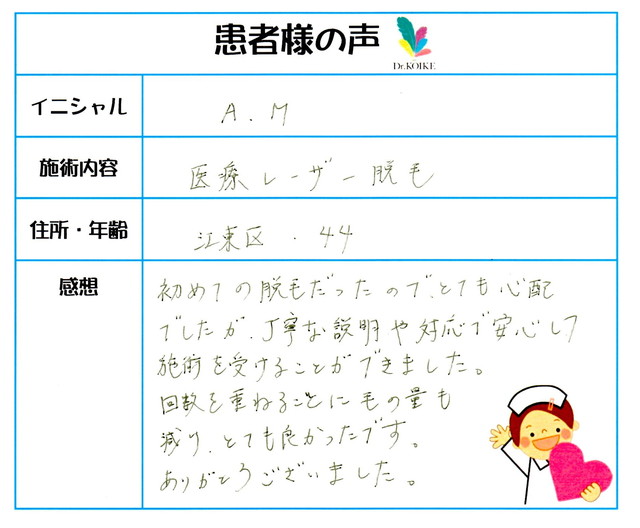 患者様の声
Dr.KOIKE
イニシャル
A.M
施術内容
医療レーザー脱毛
住所・年齢
江東区・44
感想
初めての脱毛だったので、とても心配
でしたが、丁寧な説明や対応で安心して
施術を受けることができました。
回数を重ねることに毛の量も
減り、とても良かったです。
ありがとうございました。